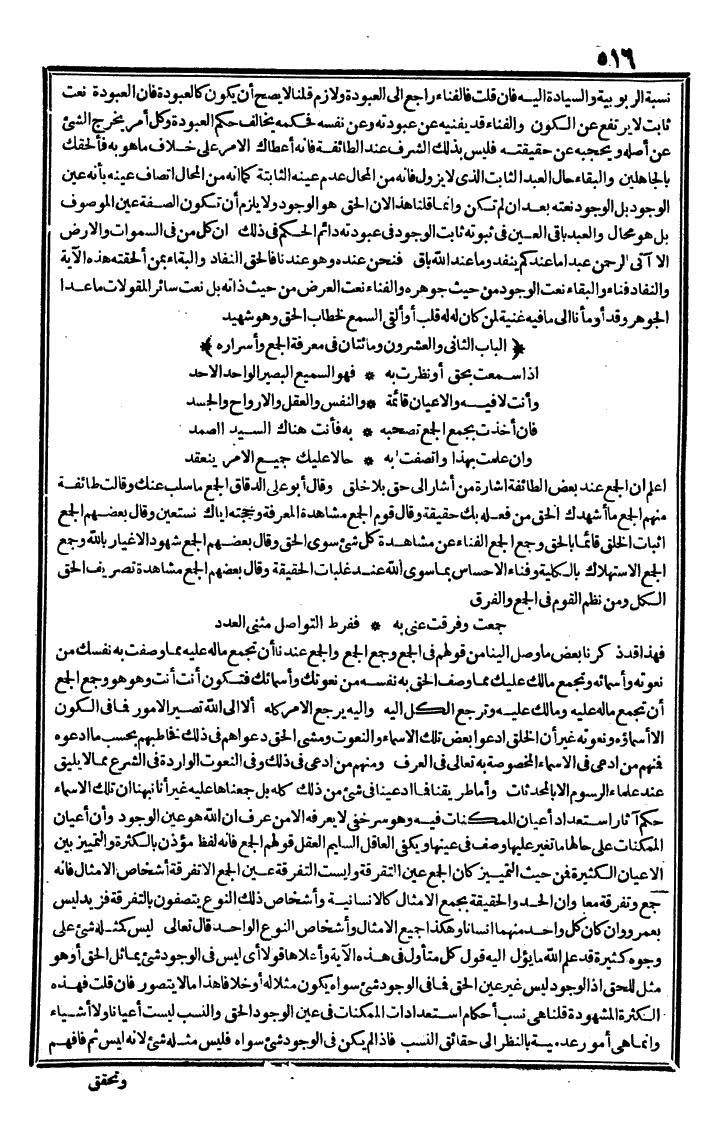 ٥١٦
نسبة الربوبية والسيادة اليه فان قلت فالفناء راجع الى العبودة ولازم قلنا لا يصح أن يكون كالعبودة فان العبودة نعت
ثابت لا يرتفع عن الكون والفناء قد يفنيه عن عبودته وعن نفسه فحكمه يخالف حكم العبودة وكل أمر يخرج الشئ
عن أصله ويحجبه عن حقيقته فليس بذلك الشرف عند الطائفة فانه أعطاك الامر على خلاف ما هو به فألحقك
بالجاهلين والبقاء حال العبد الثابت الذى لا يزول فانه من المحال عدم عينه الثابتة كما انه من المحال اتصاف عينه بأنه عين
الوجود بل الوجود نعته بعد ان لم تكن وانما قلنا هذا لان الحق هو الوجود ولا يلزم أن تكون الصفة عين الموصوف
بل هو محال والعبد باقى العين فى ثبوته ثابت الوجود فى عبودته دائم الحكم فى ذلك ان كل من فى السموات والارض
الا آتى الرحمن عبدا ما عندكم ينفد وما عند الله باق فنحن عنده وهو عندنا فالحق النفاد والبقاء بمن ألحقته هذه الآية
والنفاد فناء والبقاء نعت الوجود من حيث جوهره والفناء نعت العرض من حيث ذاته بل نعت سائر المقولات ما عدا
الجوهر وقد أومأنا الى ما فيه غنية لمن كان له قلب أو ألقى السمع لخطاب الحق وهو شهيد
﴿ الباب الثانى والعشرون ومائتان فى معرفة الجمع وأسراره ﴾
اذا سمعت بحق أو نظرت به * فهو السميع البصير الواحد الاحد
وأنت لا فيه والاعيان قائمة * والنفس والعقل والارواح والجسد
فان أخذت بجمع الجمع تصحبه * به فأنت هناك السيد الصمد
وان علمت بهذا واتصفت به * حالا عليك جميع الامر ينعقد
اعلم ان الجمع عند بعض الطائفة اشارة من أشار الى حق بلا خلق وقال أبو على الدقاق الجمع ما سلب عنك وقالت طائفة
منهم الجمع ما أشهدك الحق من فعله بك حقيقة وقال قوم الجمع مشاهدة المعرفة وحجته اياك نستعين وقال بعضهم الجمع
اثبات الخلق قائما بالحق وجمع الجمع الفناء عن مشاهدة كل شئ سوى الحق وقال بعضهم الجمع شهود الاغيار بالله وجمع
الجمع الاستهلاك بالكلية وفناء الاحساس بما سوى الله عند غلبات الحقيقة وقال بعضهم الجمع مشاهدة تصريف الحق
الكل ومن نظم القوم فى الجمع والفرق
جمعت وفرقت عنى به * ففرط التواصل مثنى العدد
فهذا قد ذكرنا بعض ما وصل الينا من قولهم فى الجمع وجمع الجمع والجمع عندنا أن تجمع ماله عليه مما وصفت به نفسك من
نعوته وأسمائه وتجمع مالك عليك مما وصف الحق به نفسه من نعوتك وأسمائك فتكون أنت أنت وهو هو وجمع الجمع
أن تجمع ماله عليه ومالك عليه وترجع الكل اليه واليه يرجع الامر كله ألا الى الله تصير الامور فما فى الكون
الا أسماؤه ونعوته غير أن الخلق ادعوا بعض تلك الاسماء والنعوت ومشى الحق دعواهم فى ذلك فخاطبهم بحسب ما ادعوه
فنهم من ادعى فى الاسماء المخصوصة به تعالى فى العرف ومنهم من ادعى فى ذلك وفى النعوت الواردة فى الشرع مما لا يليق
عند علماء الرسوم الا بالمحدثات وأما طريقنا فما ادعينا فى شئ من ذلك كله بل جمعناها عليه غير أنا نبهنا ان تلك الاسماء
حكم آثار استعداد أعيان الممكنات فيه وهو سر خفى لا يعرفه الا من عرف ان الله هو عين الوجود وأن أعيان
الممكنات على حالها ما تغير عليها وصف فى عينها ويكفى العاقل السليم العقل قولهم الجمع فانه لفظ مؤذن بالكثرة والتمييز بين
الاعيان الكثيرة فمن حيث التمييز كان الجمع عين التفرقة وليست التفرقة عين الجمع الا تفرقة أشخاص الامثال فانه
جمع وتفرقة معا وان الحد والحقيقة يجمع الامثال كالانسانية وأشخاص ذلك النوع يتصفون بالتفرقة فزيد ليس
بعمرو وان كان كل واحد منهما انسانا وهكذا جميع الامثال وأشخاص النوع الواحد قال تعالى ليس كمثله شئ على
وجوه كثيرة قد علم الله ما يؤل اليه قول كل متأول فى هذه الآية وأعلاها قولا أى ليس فى الوجود شئ يماثل الحق أو هو
مثل للحق اذ الوجود ليس غير عين الحق فما فى الوجود شئ سواه يكون مثلا له أو خلافا هذا ما لا يتصور فان قلت فهذه
الكثرة المشهودة قلنا هى نسب أحكام استعدادات الممكنات فى عين الوجود الحق والنسب ليست أعيانا ولا أشياء
وانما هى أمور عدمية بالنظر الى حقائق النسب فاذا لم يكن فى الوجود شئ سواه فليس مثله شئ لانه ليس ثم فافهم
وتحقق